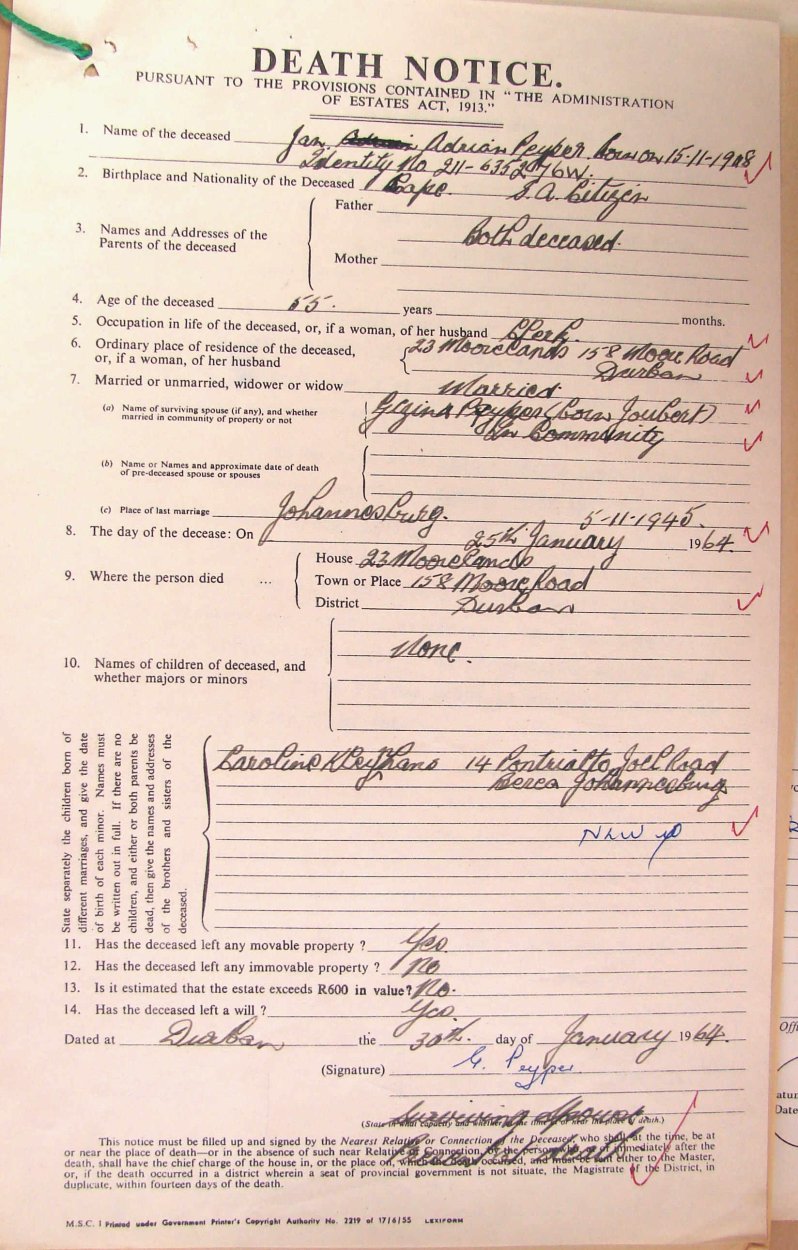 DEATH NOTICE.
PURSUANT TO THE PROVISIONS CONTAINED IN "THE ADMINISTRATION
OF ESTATES ACT, 1913."
1. Name of the deceased Jan Adrian Peyper born on 15-11-1908
Identity No 211-6352076W.
2. Birthplace and Nationality of the Deceased Cape. S.A. Citizen
Father
3. Names and Addresses of the Parents of the deceased Both deceased.
Mother
4. Age of the deceased 55. years months.
5. Occupation in life of the deceased, or, if a woman, of her husband Clerk.
6. Ordinary place of residence of the deceased, 23 Moorelands 158 Moore Road
or, if a woman, of her husband Durban
7. Married or unmarried, widower or widow Married.
(a) Name of surviving spouse (if any), and whether Gezina Peyper (born Joubert)
married in community of property or not In Community
(b) Name or Names and approximate date of death
of pre-deceased spouse or spouses
(c) Place of last marriage Johannesburg. 5-11-1945.
8. The day of the decease: On 25th January 1964.
House 23 Moorelands
9. Where the person died ... Town or Place 158 Moore Road
District Durban
None.
10. Names of children of deceased, and
whether majors or minors
State separately the children born of
different marriages, and give the date
of birth of each minor. Names must
be written out in full. If there are no
children, and either or both parents be
dead, then give the names and addresses
of the brothers and sisters of the
deceased.
Caroline Kleyhans 14 Joel Road
Berea Johannesburg
11. Has the deceased left any movable property ? Yes
12. Has the deceased left any immovable property ? No
13. Is it estimated that the estate exceeds R600 in value? No.
14. Has the deceased left a will ? Yes
Dated at Durban the 30th. day of January 1964.
(Signature) G. Peyper.
Surviving Spouse
(State in what capacity and whether at the time at or near the place of death.)
This notice must be filled up and signed by the Nearest Relative or Connection of the Deceased, who shall, at the time, be at
or near the place of death—or in the absence of such near Relative or Connection, by the person who, at or immediately after the
death, shall have the chief charge of the house in, or the place on, which the death occurred, and must be sent either to the Master,
or, if the death occurred in a district wherein a seat of provincial government is not situate, the Magistrate of the District, in
duplicate, within fourteen days of the death.
M.S.C. 1 Printed under Government Printer's Copyright Authority No. 2219 of 17/6/55 LEXIFORM